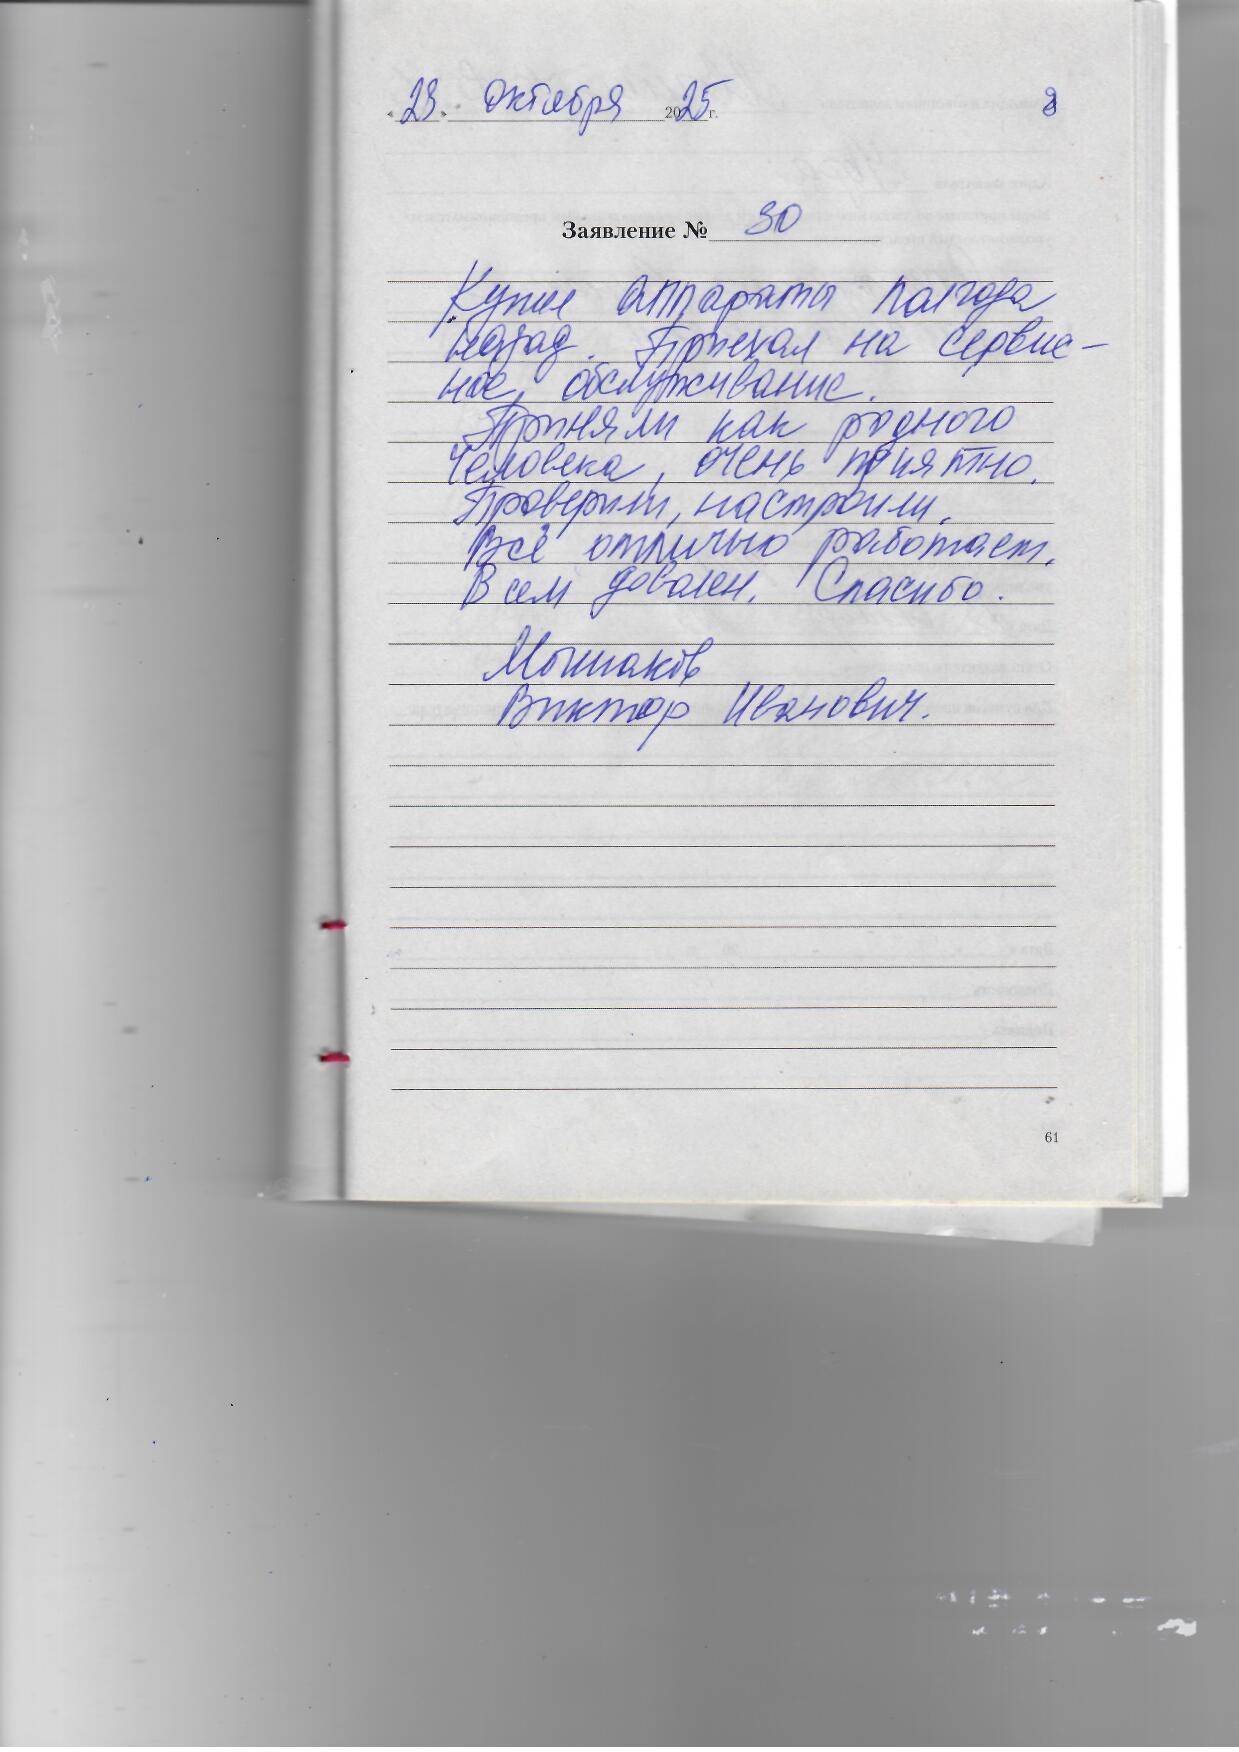 « 23 » октября 2025 г.
Заявление № 30
Купил аппараты полгода
назад. Приехал на сервис-
ное обслуживание.
Приняли как родного
человека, очень приятно.
Проверили, настроили.
Всё отлично работает.
Всем доволен. Спасибо.
Виктор Иванович.
61